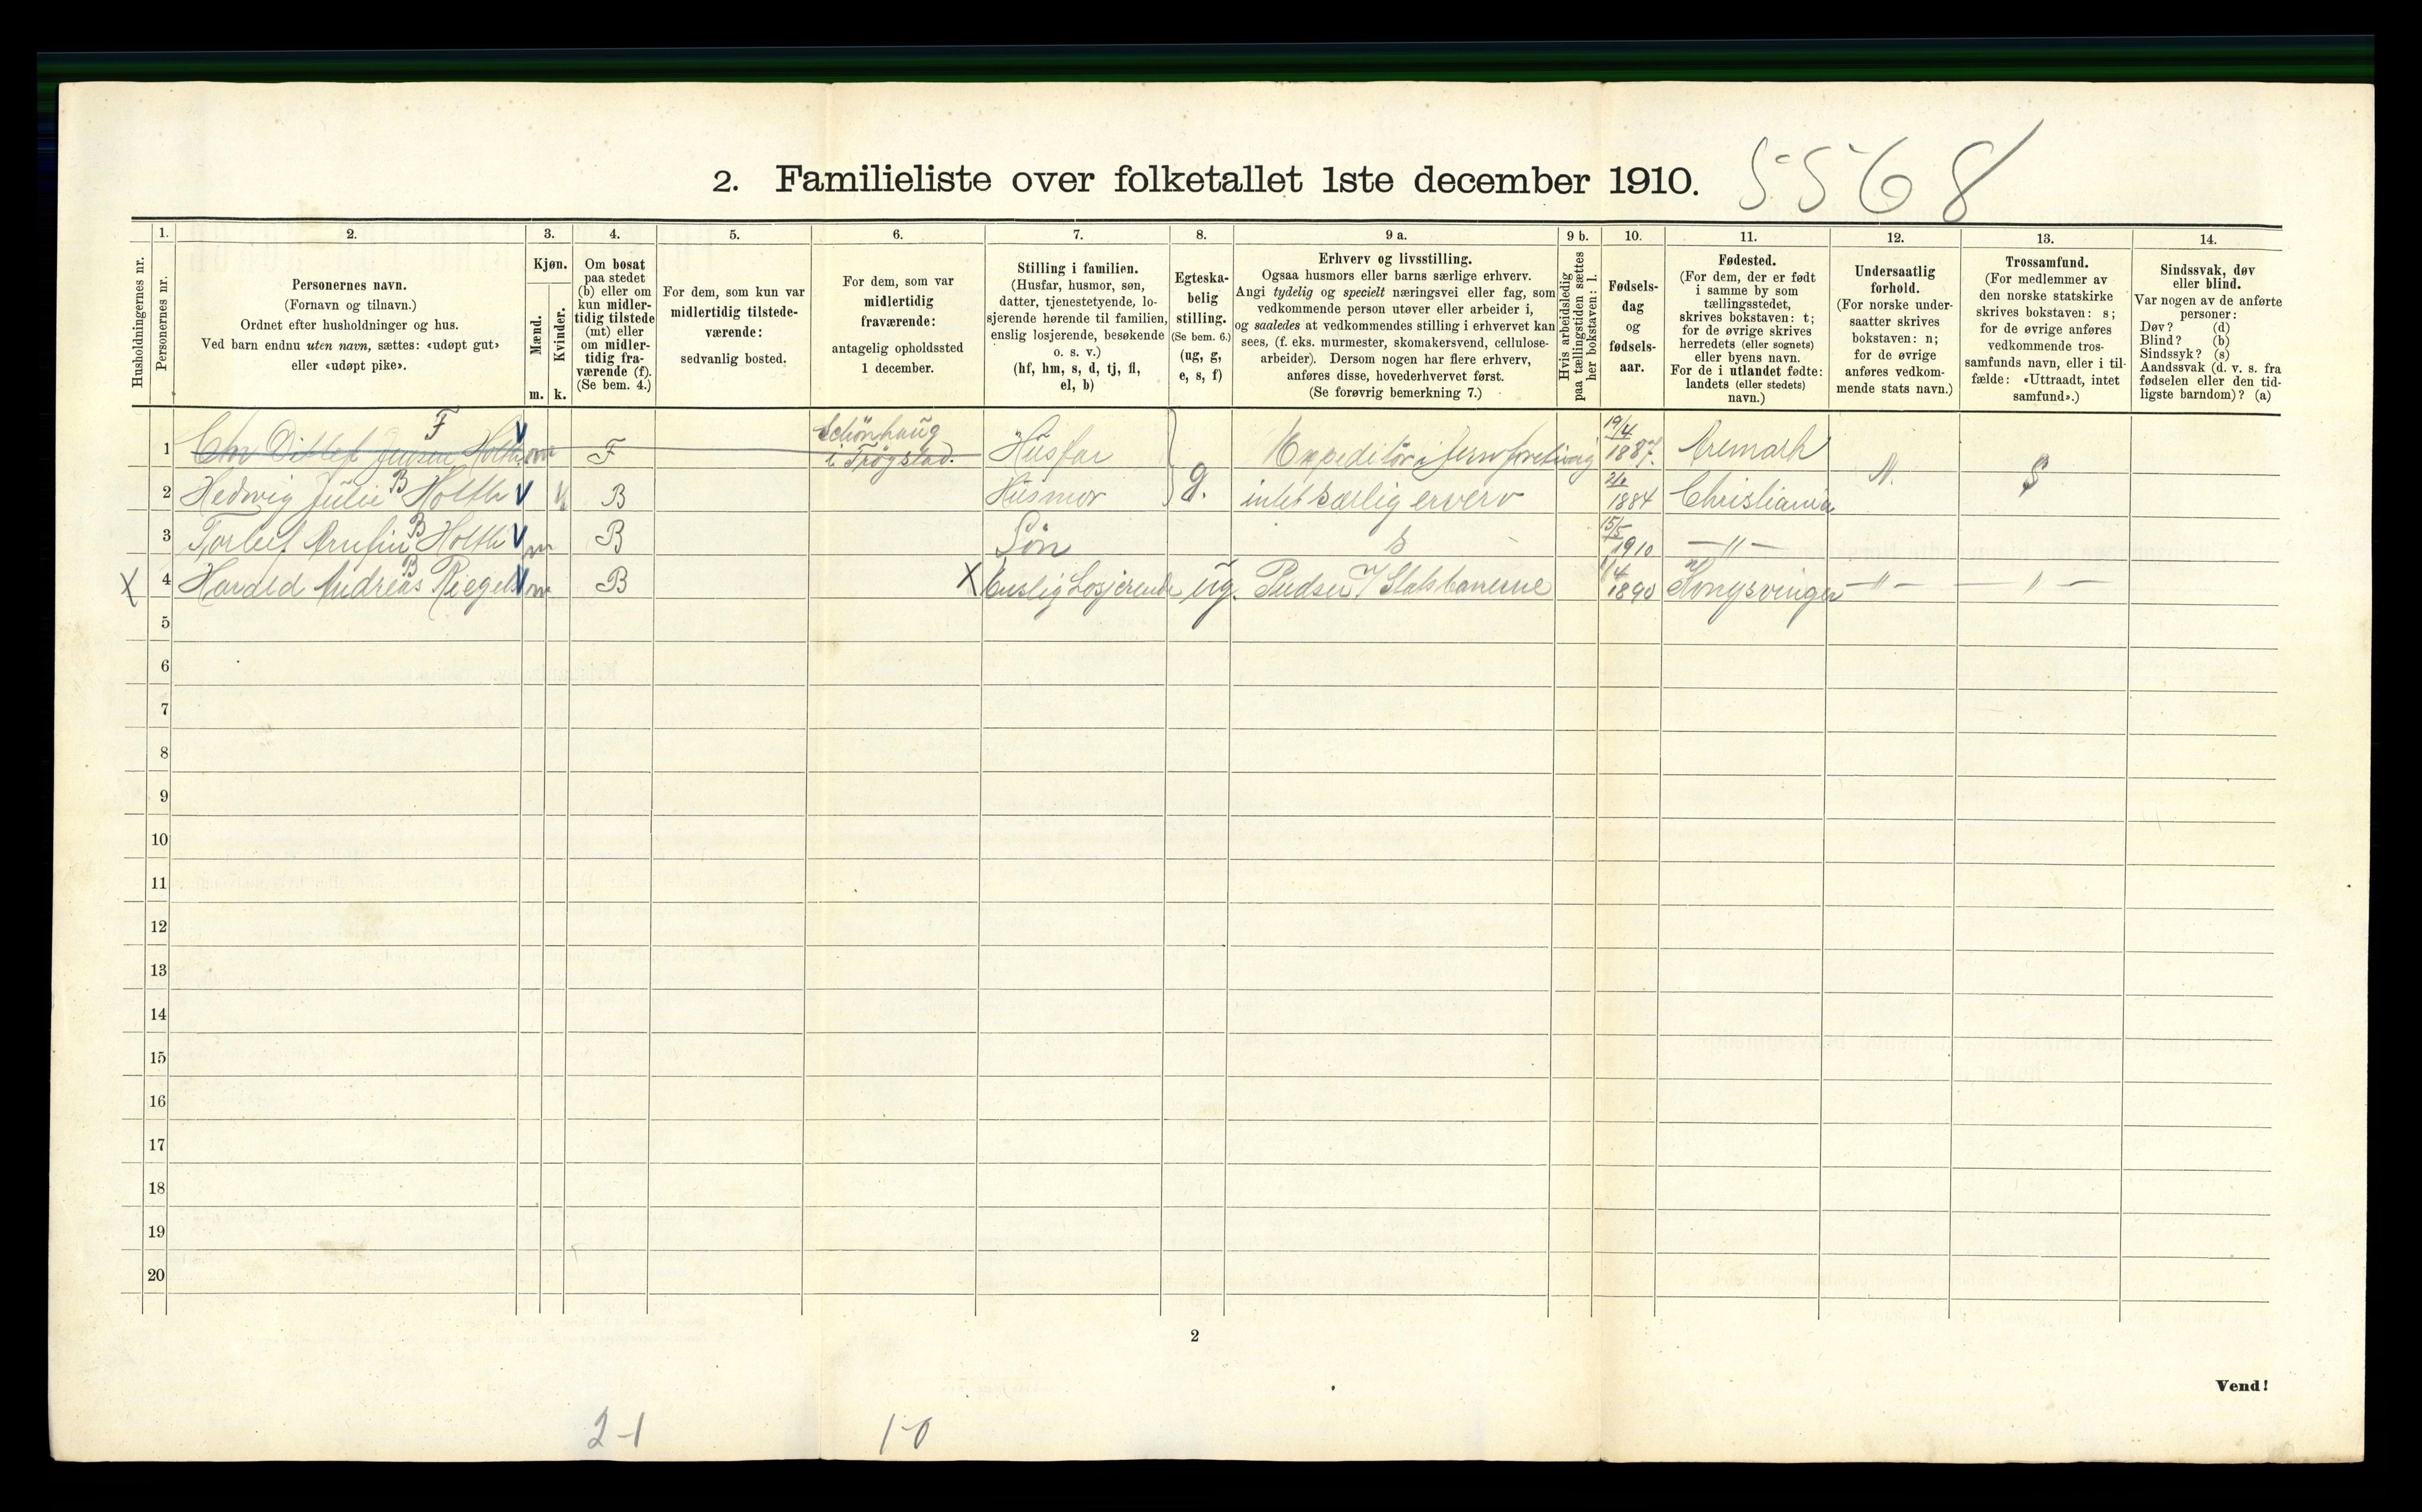 2. Familieliste over folketallet 1ste december 1910. 5568
Husholdningernes nr.
1.
Personernes nr.
2.
Personernes navn.
(Fornavn og tilnavn.)
Ordnet efter husholdninger og hus.
Ved barn endnu uten navn, sættes: «udøpt gut»
eller «udøpt pike».
3.
Kjøn.
Mænd.
Kvinder.
m. k.
4.
Om bosat
paa stedet
(b) eller om
kun midler-
tidig tilstede
(mt) eller
om midler-
tidig fra-
værende (f).
(Se bem. 4.)
5.
For dem, som kun var
midlertidig tilstede-
værende:
sedvanlig bosted.
6.
For dem, som var
midlertidig
fraværende:
antagelig opholdssted
1 december.
7.
Stilling i familien.
(Husfar, husmor, søn,
datter, tjenestetyende, lo-
sjerende hørende til familien,
enslig losjerende, besøkende
o. s. v.)
(hf, hm, s, d, tj, fl,
el, b)
8.
Egteska-
belig
stilling.
(Se bem. 6.)
(ug, g,
e, s, f)
9 a.
Erhverv og livsstilling.
Ogsaa husmors eller barns særlige erhverv.
Angi tydelig og specielt næringsvei eller fag, som
vedkommende person utøver eller arbeider i,
og saaledes at vedkommendes stilling i erhvervet kan
sees, (f. eks. murmester, skomakersvend, cellulose-
arbeider). Dersom nogen har flere erhverv,
anføres disse, hovederhvervet først.
(Se forøvrig bemerkning 7.)
9 b.
Hvis arbeidsledig
paa tællingstiden sættes
her bokstaven: l.
10.
Fødsels-
dag
og
fødsels-
aar.
11.
Fødested.
(For dem, der er født
i samme by som
tællingsstedet,
skrives bokstaven: t;
for de øvrige skrives
herredets (eller sognets)
eller byens navn.
For de i utlandet fødte:
landets (eller stedets)
navn.)
12.
Undersaatlig
forhold.
(For norske under-
saatter skrives
bokstaven: n;
for de øvrige
anføres vedkom-
mende stats navn.)
13.
Trossamfund.
(For medlemmer av
den norske statskirke
skrives bokstaven: s;
for de øvrige anføres
vedkommende tros-
samfunds navn, eller i til-
fælde: «Uttraadt, intet
samfund».)
14.
Sindssvak, døv
eller blind.
Var nogen av de anførte
personer:
Døv? (d)
Blind? (b)
Sindssyk? (s)
Aandssvak (d. v. s. fra
fødselen eller den tid-
ligste barndom)? (a)
1 Chr Ditlef Jensen F Holth V m F Schönhaug i Trögstad. Husfar g. Expeditör i 19/4 1887. Aremark N. S
2 Hedwig Julie B Holth V k B Husmor intet særlig erverv 1884 Christiania
3 Torleif Arnfin B Holth V m B Søn s 15/5 1910 —"—
X 4 Harald Andreas B Riegel V m B X Enslig Losjerende ug. Pudser v/ Statsbanerne 1/4 1890 Kongsvinger —"— —"—
5
6
7
8
9
10
11
12
13
14
15
16
17
18
19
20
2
Vend!
2-1 1-0